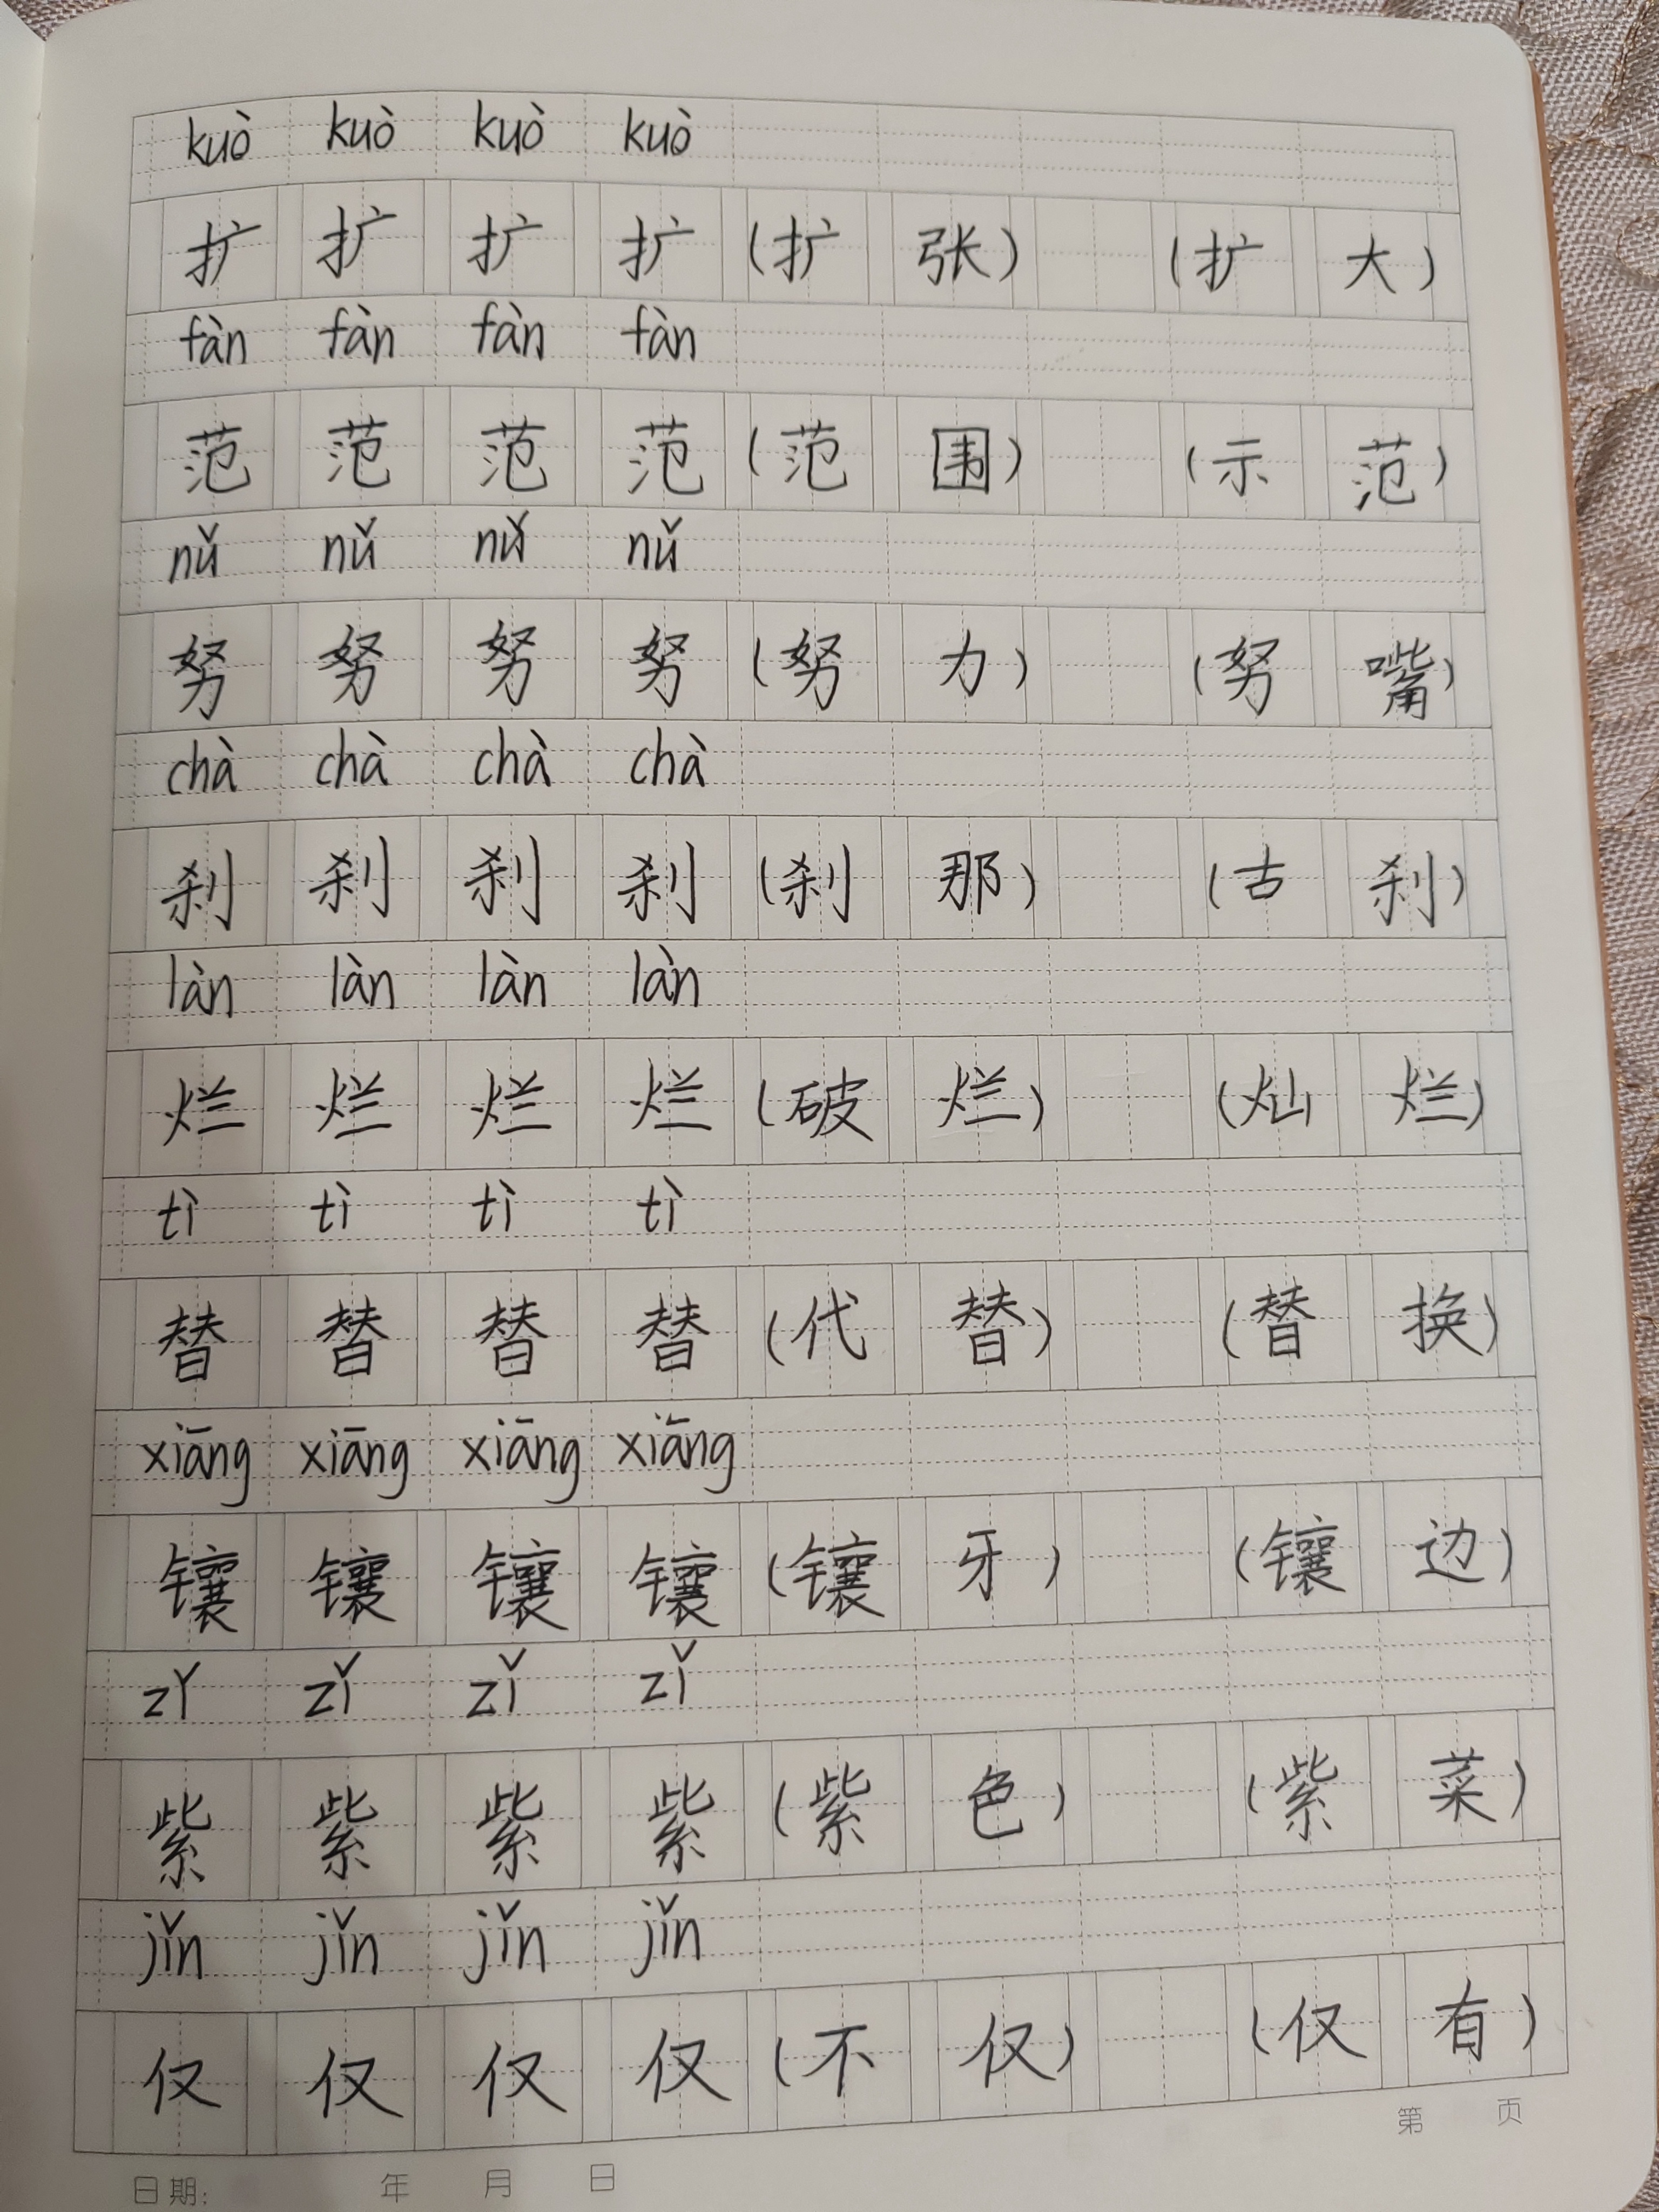 kuò kuò kuò kuò
扩 扩 扩 扩 (扩 张) (扩 大)
fàn fàn fàn fàn
范 范 范 范 (范 围) (示 范)
nǔ nǔ nǔ nǔ
努 努 努 努 (努 力) (努 嘴)
chà chà chà chà
刹 刹 刹 刹 (刹 那) (古 刹)
làn làn làn làn
烂 烂 烂 烂 (破 烂) (灿 烂)
tì tì tì tì
替 替 替 替 (代 替) (替 换)
xiāng xiāng xiāng xiāng
镶 镶 镶 镶 (镶 牙) (镶 边)
zǐ zǐ zǐ zǐ
紫 紫 紫 紫 (紫 色) (紫 菜)
jǐn jǐn jǐn jǐn
仅 仅 仅 仅 (不 仅) (仅 有)
第 页
日期: 年 月 日